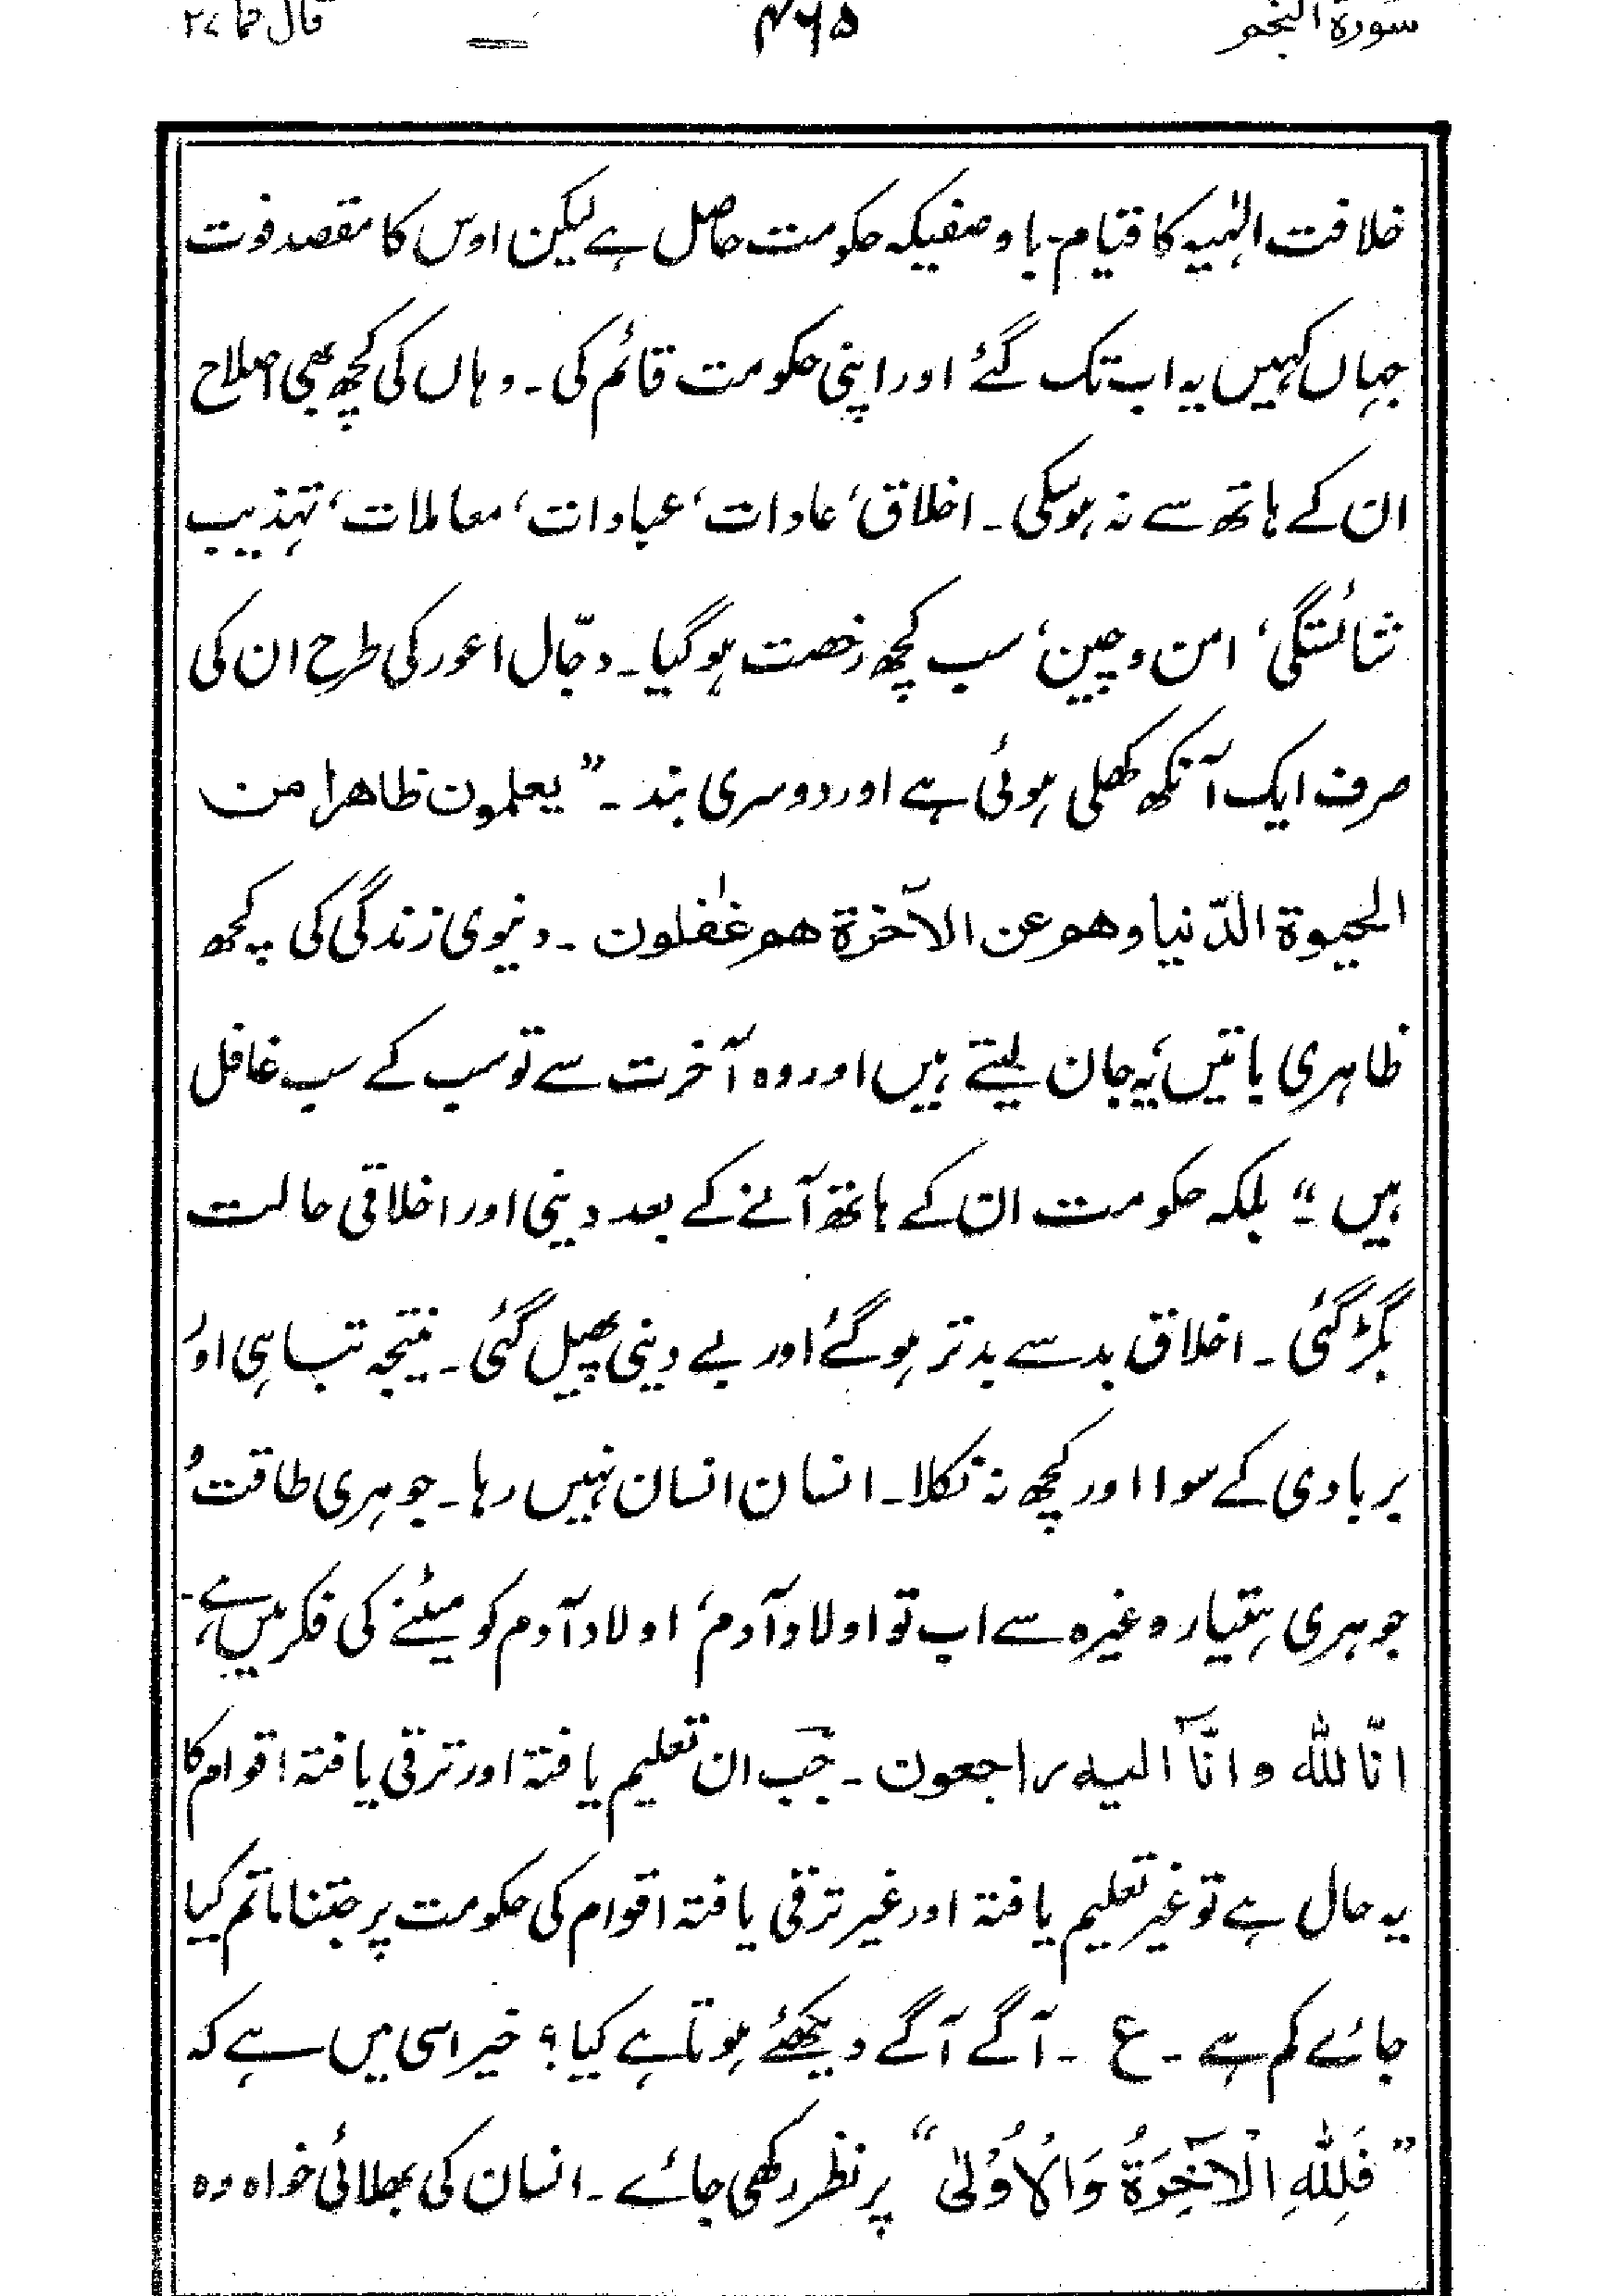 سورة النجم ۴۶۵ قال فما ۲۷
خلافت الٰہیہ کا قیام۔ باوصفیکہ حکومت حاصل ہے لیکن اوس کا مقصد فوت
جہاں کہیں یہ اب تک گئے اور اپنی حکومت قائم کی۔ وہاں کی کچھ بھی اصلاح
ان کے ہاتھ سے نہ ہوسکی۔ اخلاق، عادات، عبادات، معاملات، تہذیب
شائستگی، امن و چین، سب کچھ رخصت ہوگیا۔ دجّال اعور کی طرح ان کی
صرف ایک آنکھ کھلی ہوئی ہے اور دوسری بند۔ ”یعلمون ظاھرا من
الحیوة الدّنیا وھم عن الآخرة ھم غٰفلون۔ دنیوی زندگی کی کچھ
ظاہری باتیں، یہ جان لیتے ہیں اور وہ آخرت سے تو سب کے سب غافل
ہیں“ بلکہ حکومت ان کے ہاتھ آنے کے بعد دینی اور اخلاقی حالت
بگڑ گئی۔ اخلاق بد سے بدتر ہوگئے اور بے دینی پھیل گئی۔ نتیجہ تباہی اور
بربادی کے سوا اور کچھ نہ نکلا۔ انسان انسان نہیں رہا۔ جوہری طاقت و
جوہری ہتیار وغیرہ سے اب تو اولاد آدم، اولاد آدم کو میٹنے کی فکر میں ہے۔
انّا للہ و انّآ الیہ راجعون۔ جب ان تعلیم یافتہ اور ترقی یافتہ اقوام کا
یہ حال ہے تو غیر تعلیم یافتہ اور غیر ترقی یافتہ اقوام کی حکومت پر جتنا ماتم کیا
جائے کم ہے۔ ع ۔ آگے آگے دیکھئے ہوتا ہے کیا؟ خیر اسی میں ہے کہ
”فَلِلّٰهِ الْآخِرَةُ وَالْاُوْلٰی“ پر نظر رکھی جائے۔ انسان کی بھلائی خواہ وہ